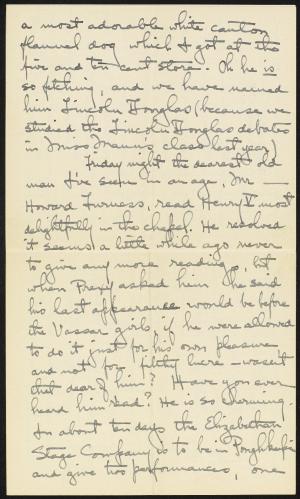 a most adorable white canton
flannel dog which I got at the
five and ten cent store. Oh he is
so fetching, and we have named
him Lincoln Douglas (because we
studied the Lincoln Douglas debates
in Miss Mann's class last year)
Friday night the dearest old
man I've seen in an age, Mr —
Howard Furness, read Henry V most
delightfully in the chapel. He resolved
it seems a little while ago never
to give any more readings, but
when Prexy asked him he said
his last appearance would be before
the Vassar girls, if he were allowed
to do it just for his own pleasure
and not for filthy lucre — wasn't
that dear of him? Have you ever
heard him read? He is so charming.
In about ten days the Elizabethan
Stage Company is to be in Poughkeepsie
and give two performances, one